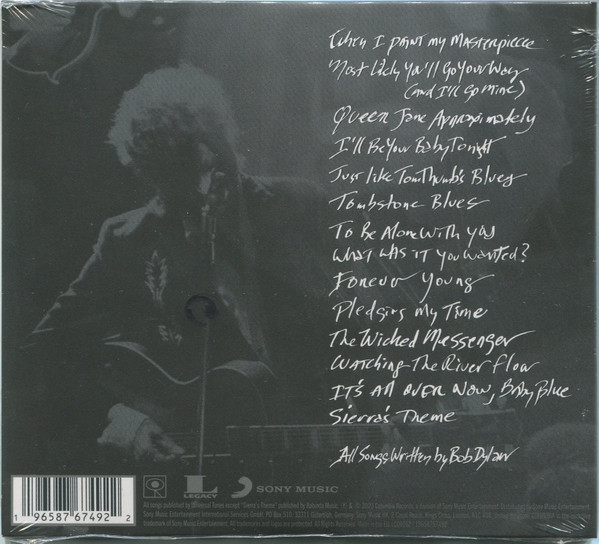 When I Paint my Masterpiece
Most Likely You'll Go Your Way
(and I'll Go Mine)
Queen Jane Approximately
I'll Be Your Baby Tonight
Just Like Tom Thumb's Blues
Tombstone Blues
To Be Alone With You
What Was it You Wanted?
Forever Young
Pledging My Time
The Wicked Messenger
Watching The River Flow
It's All Over Now, Baby Blue
Sierra's Theme
All Songs Written by Bob Dylan
LEGACY
SONY MUSIC
1 96587 67492 2